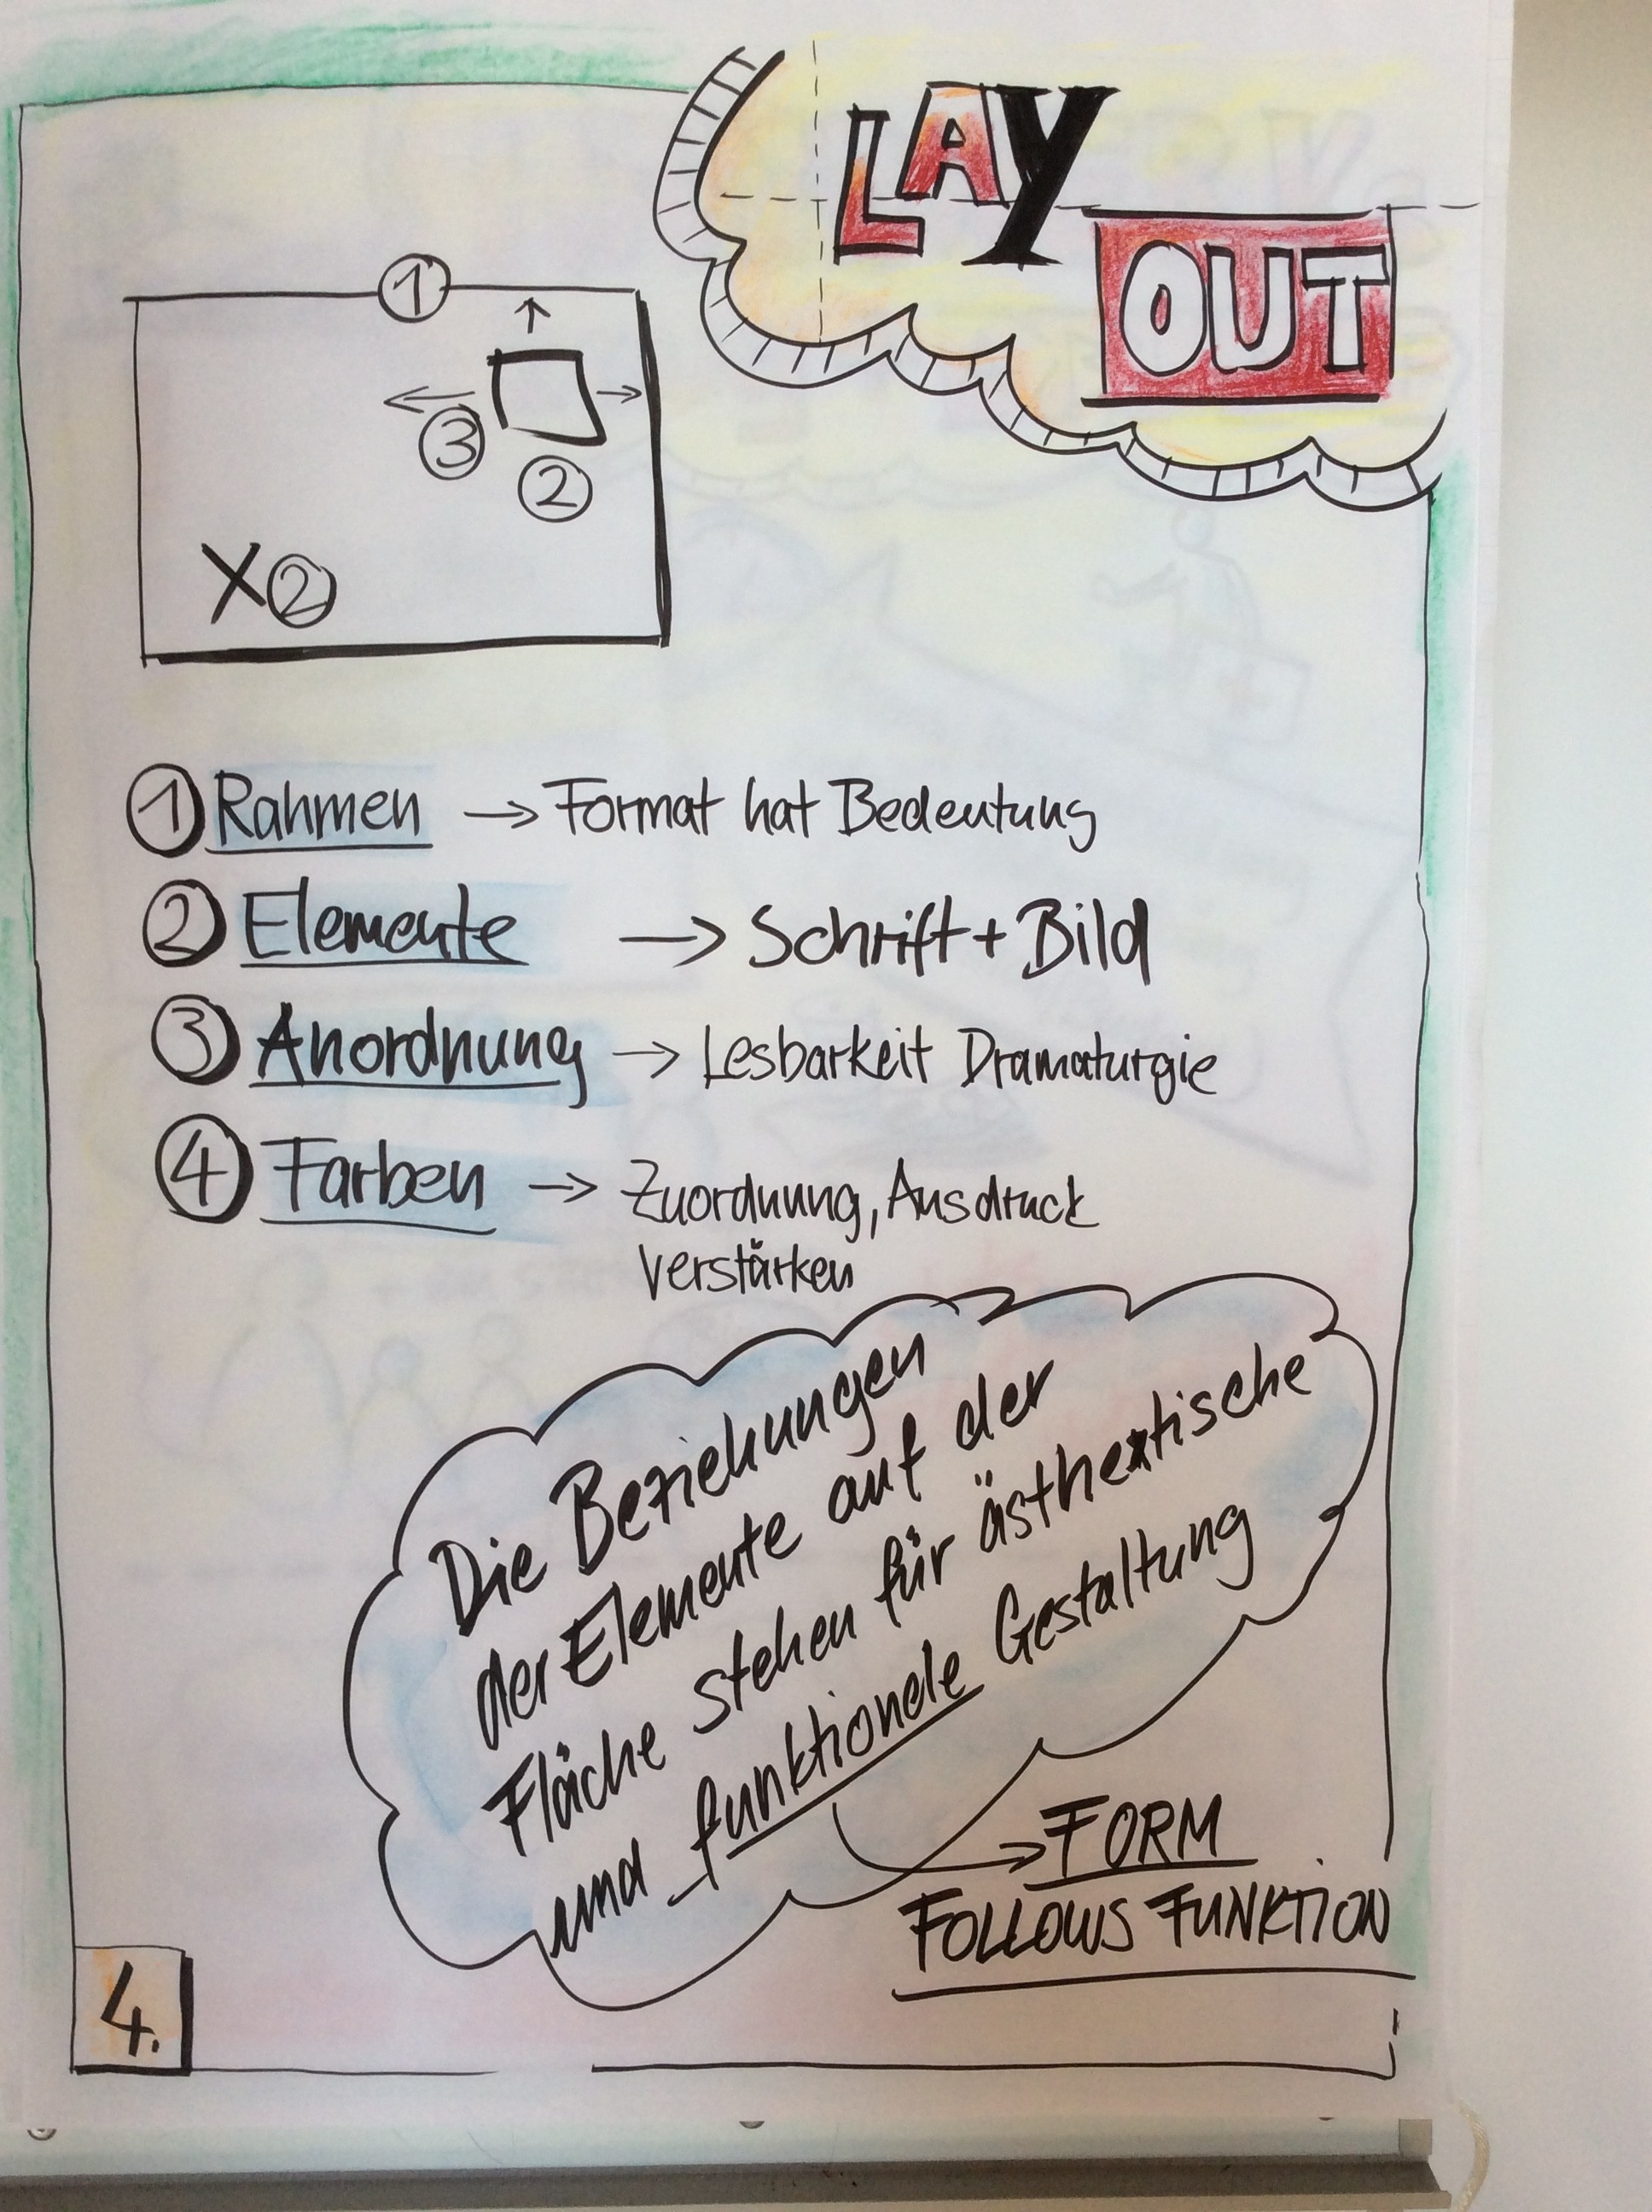 LAY
OUT
1
3
2
X 2
1 Rahmen → Format hat Bedeutung
2 Elemente → Schrift + Bild
3 Anordnung → Lesbarkeit Dramaturgie
4 Farben → Zuordnung, Ausdruck
verstärken
Die Beziehungen
der Elemente auf der
Fläche stehen für ästhetische
und funktionele Gestaltung
→ FORM
FOLLOWS FUNKTION
4.